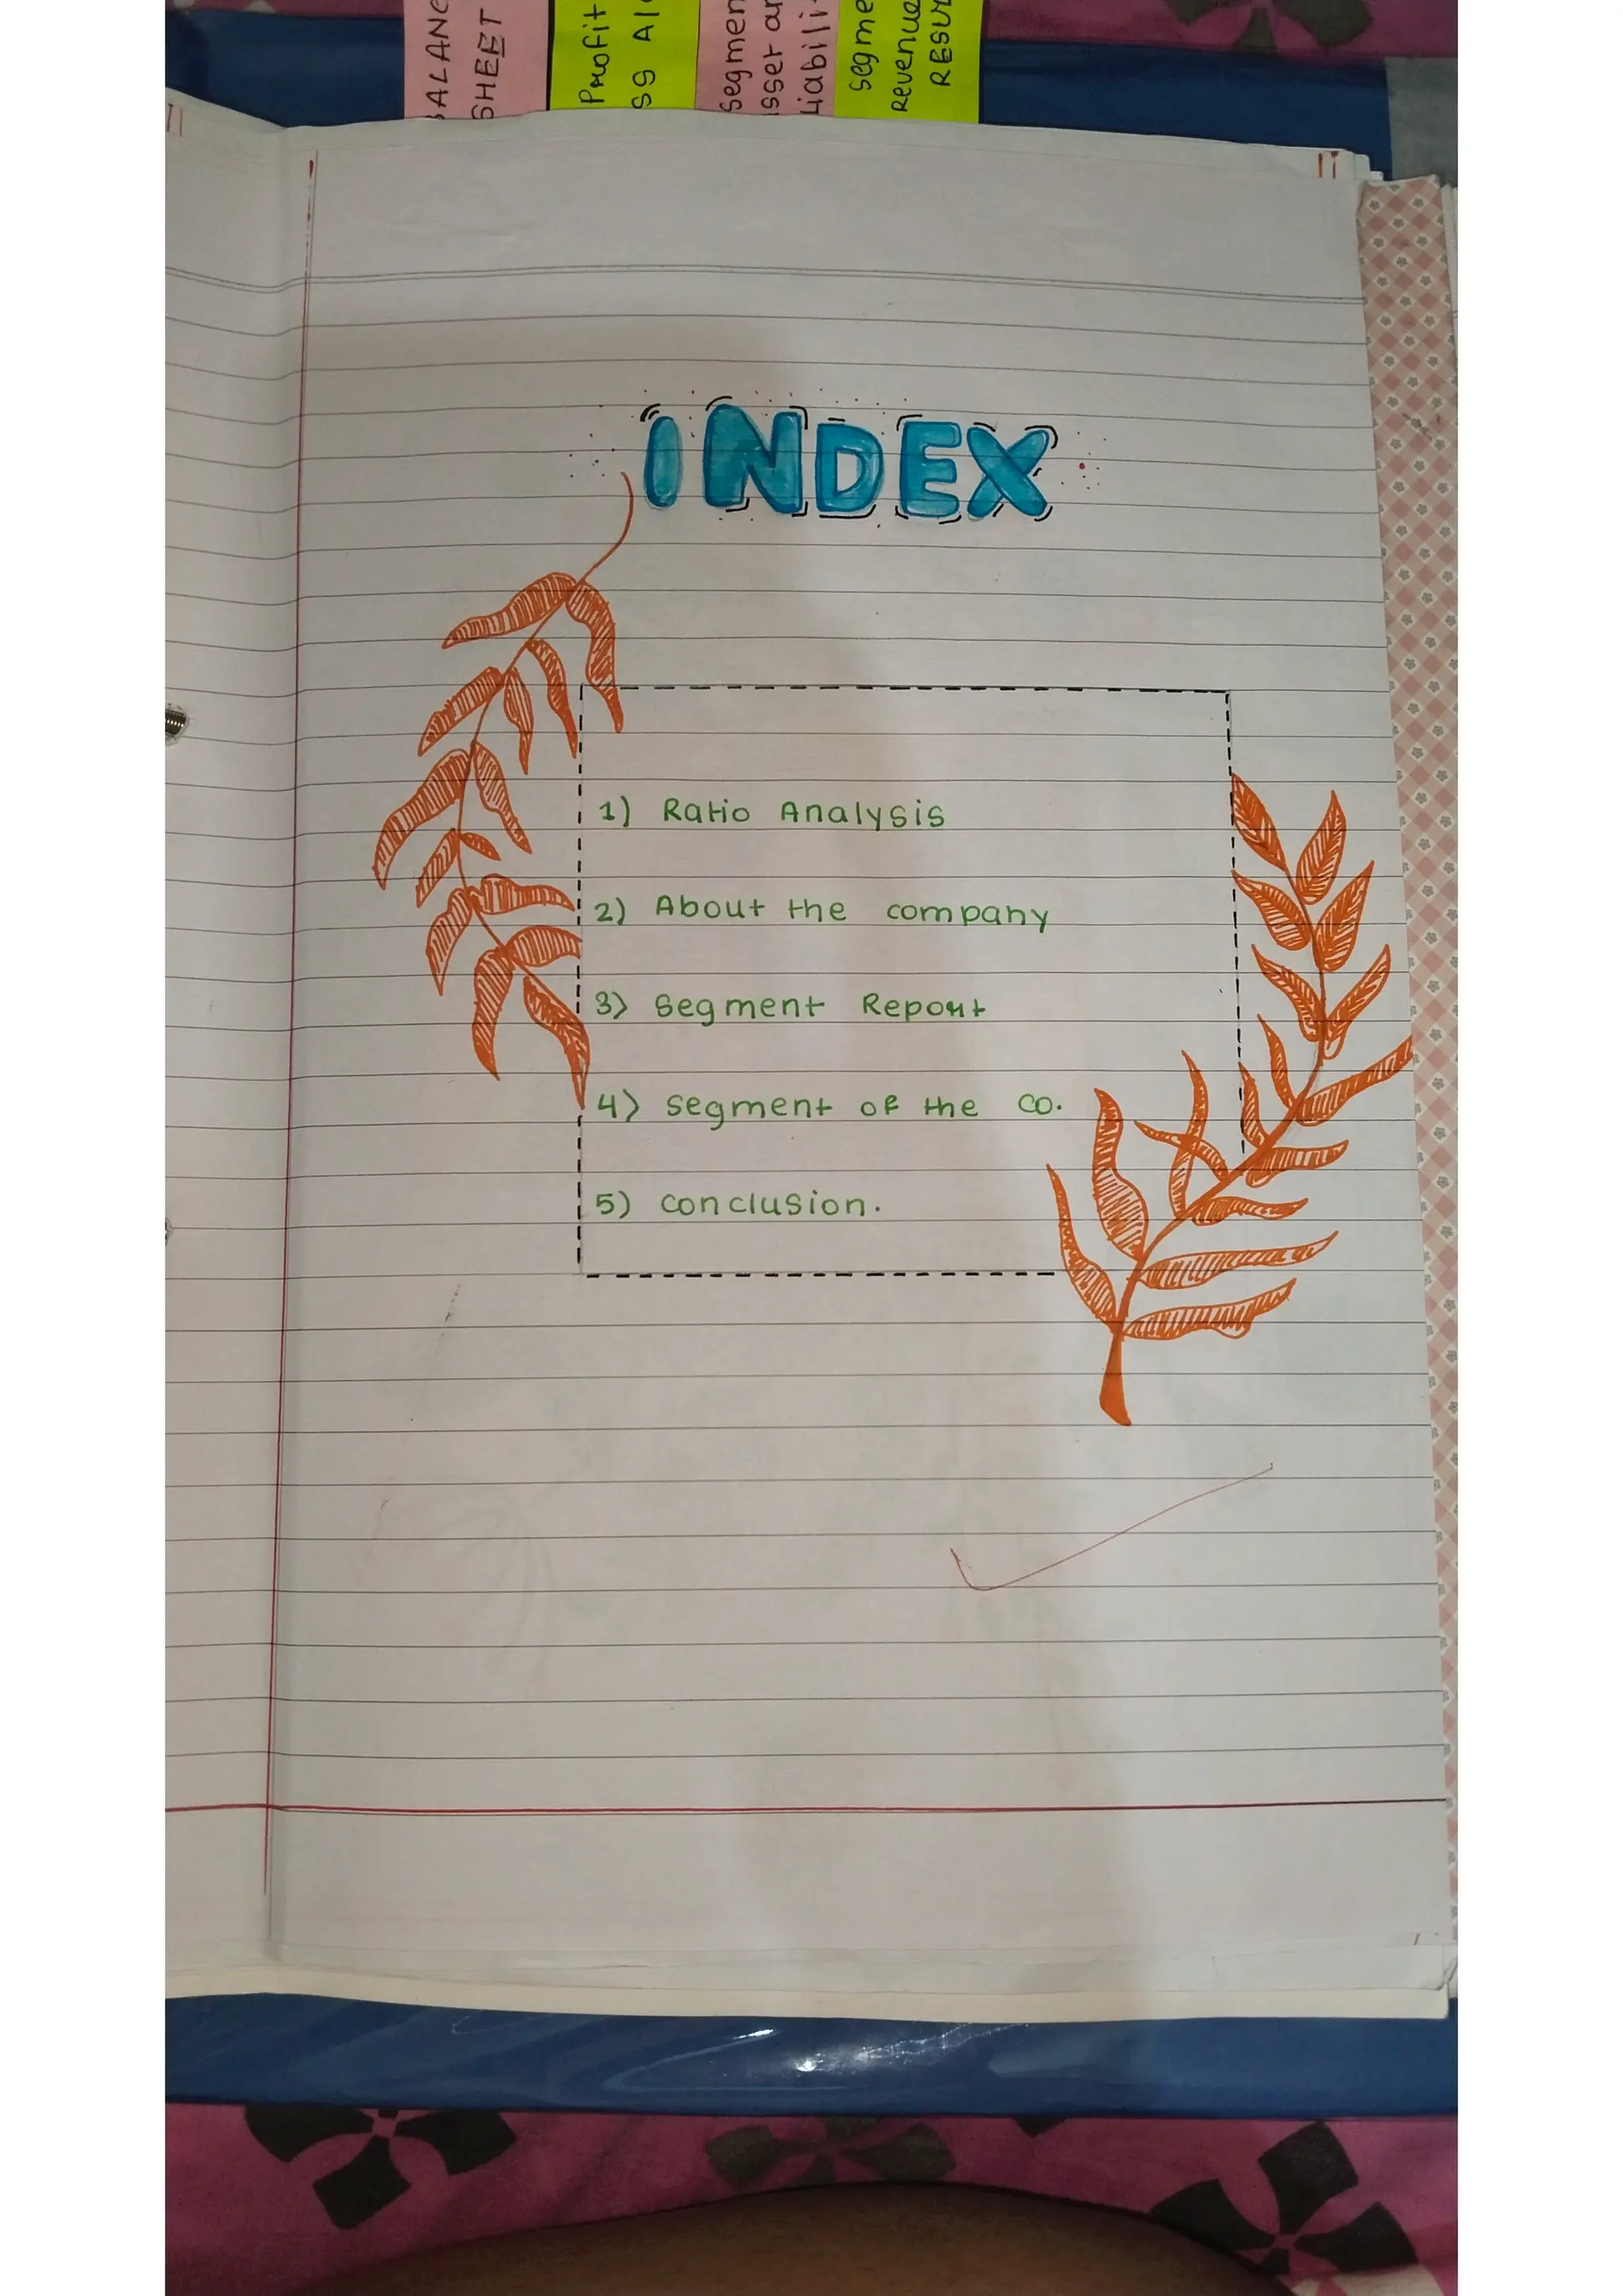 ALANC
SHEET
Profit
SS A/C
Segmen
sset an
iabili
Segme
Revenue
RESUL
INDEX
1) Ratio Analysis
2) About the company
3) Segment Report
4) Segment of the co.
5) Conclusion.